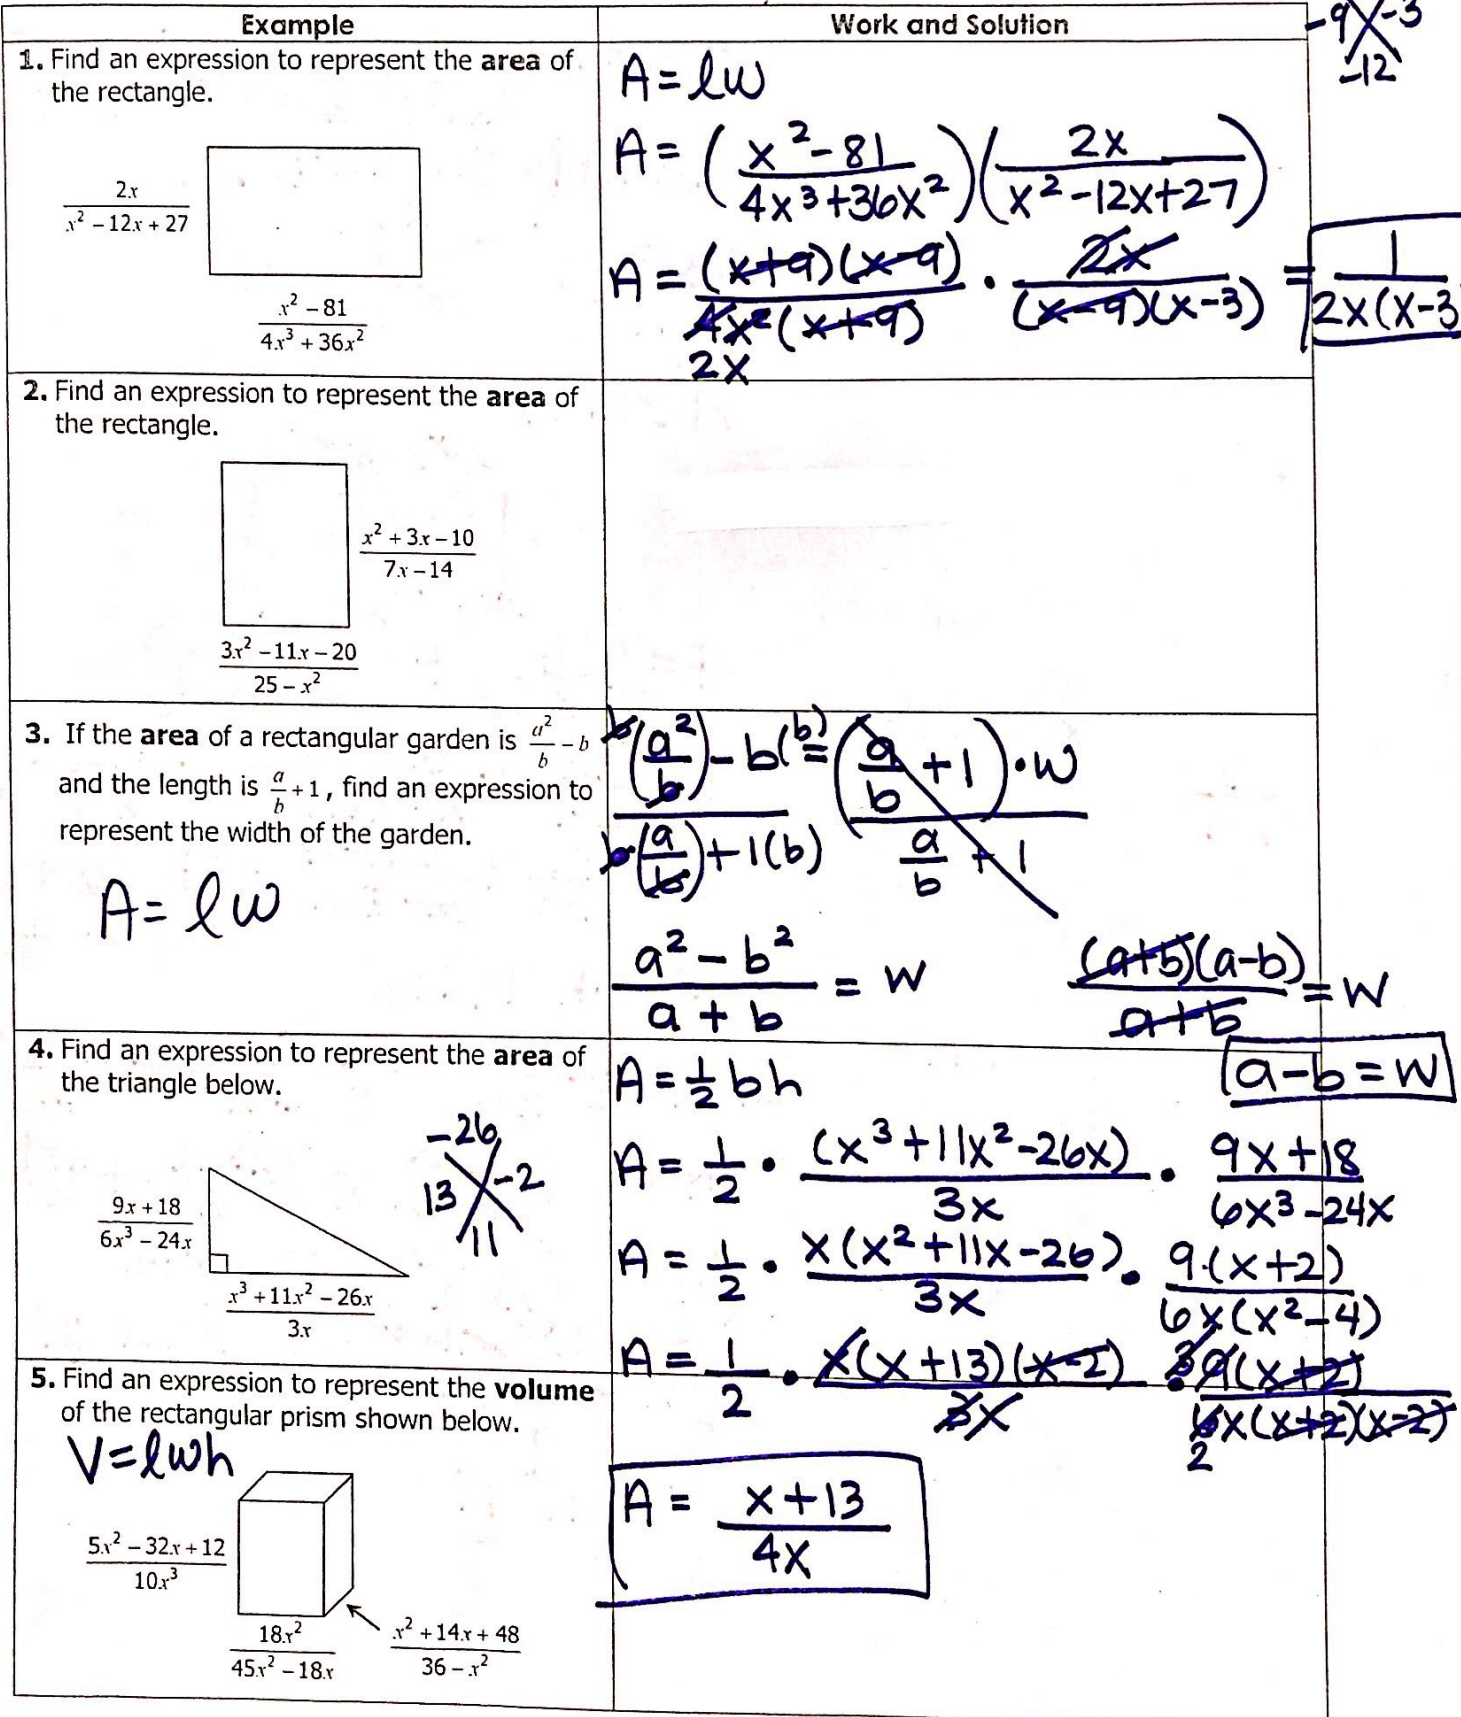 Example
Work and Solution
-9 -3
-12
1. Find an expression to represent the area of
the rectangle.
2x
x² – 12x + 27
x² – 81
4x³ + 36x²
A = lw
A = (x² - 81 / 4x³ + 36x²)(2x / x² - 12x + 27)
A = (x+9)(x-9) / 4x²(x+9) · 2x / (x-9)(x-3) = 1 / 2x(x-3
2x
2. Find an expression to represent the area of
the rectangle.
x² + 3x – 10
7x – 14
3x² – 11x – 20
25 – x²
3. If the area of a rectangular garden is a²/b – b
and the length is a/b + 1, find an expression to
represent the width of the garden.
A = lw
b(a²/b) - b(b) = (a/b + 1) · w
b(a/b) + 1(b)   a/b + 1
a² - b² / a + b = w
(a+b)(a-b) / a+b = w
a - b = w
4. Find an expression to represent the area of
the triangle below.
-26
13 -2
11
9x + 18
6x³ – 24x
x³ + 11x² – 26x
3x
A = 1/2 bh
A = 1/2 · (x³ + 11x² - 26x) / 3x · 9x + 18 / 6x³ - 24x
A = 1/2 · x(x² + 11x - 26) / 3x · 9·(x+2) / 6x(x² - 4)
A = 1/2 · x(x+13)(x-2) / 3x · 3 9(x+2) / 6x(x+2)(x-2)
2
A = x + 13 / 4x
5. Find an expression to represent the volume
of the rectangular prism shown below.
V = lwh
5x² – 32x + 12
10x³
18x²
45x² – 18x
x² + 14x + 48
36 – x²